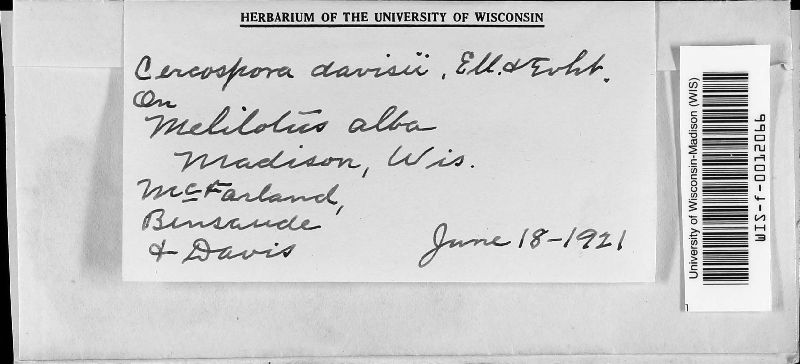 HERBARIUM OF THE UNIVERSITY OF WISCONSIN
Cercospora davisii, Ell. & Evht.
On
Melilotus alba
Madison, Wis.
McFarland,
Bensaude
& Davis
June 18-1921
University of Wisconsin-Madison (WIS)
WIS-f-0012066